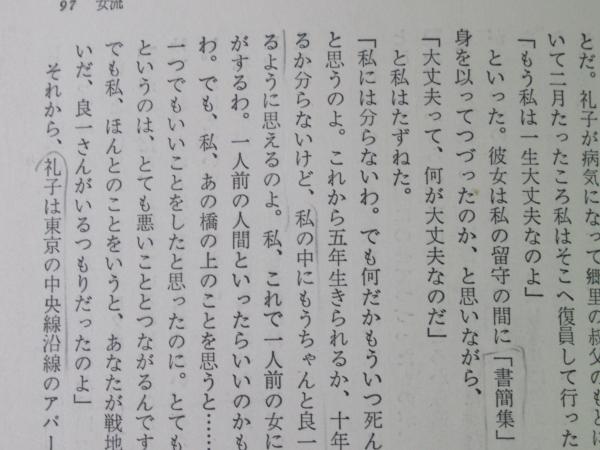 97 女流
とだ。礼子が病気になって郷里の叔父のもとに
いて二月たったころ私はそこへ復員して行った
「もう私は一生大丈夫なのよ」
といった。彼女は私の留守の間に「書簡集」
身を以ってつづったのか、と思いながら、
「大丈夫って、何が大丈夫なのだ」
と私はたずねた。
「私には分らないわ。でも何だかもういつ死ん
と思うのよ。これから五年生きられるか、十年
るか分らないけど、私の中にもうちゃんと良一
るように思えるのよ。私、これで一人前の女に
がするわ。一人前の人間といったらいいのかも
わ。でも、私、あの橋の上のことを思うと……
一つでもいいことをしたと思ったのに。とても
というのは、とても悪いこととつながるんです
でも私、ほんとのことをいうと、あなたが戦地
いだ、良一さんがいるつもりだったのよ」
それから、礼子は東京の中央線沿線のアパー